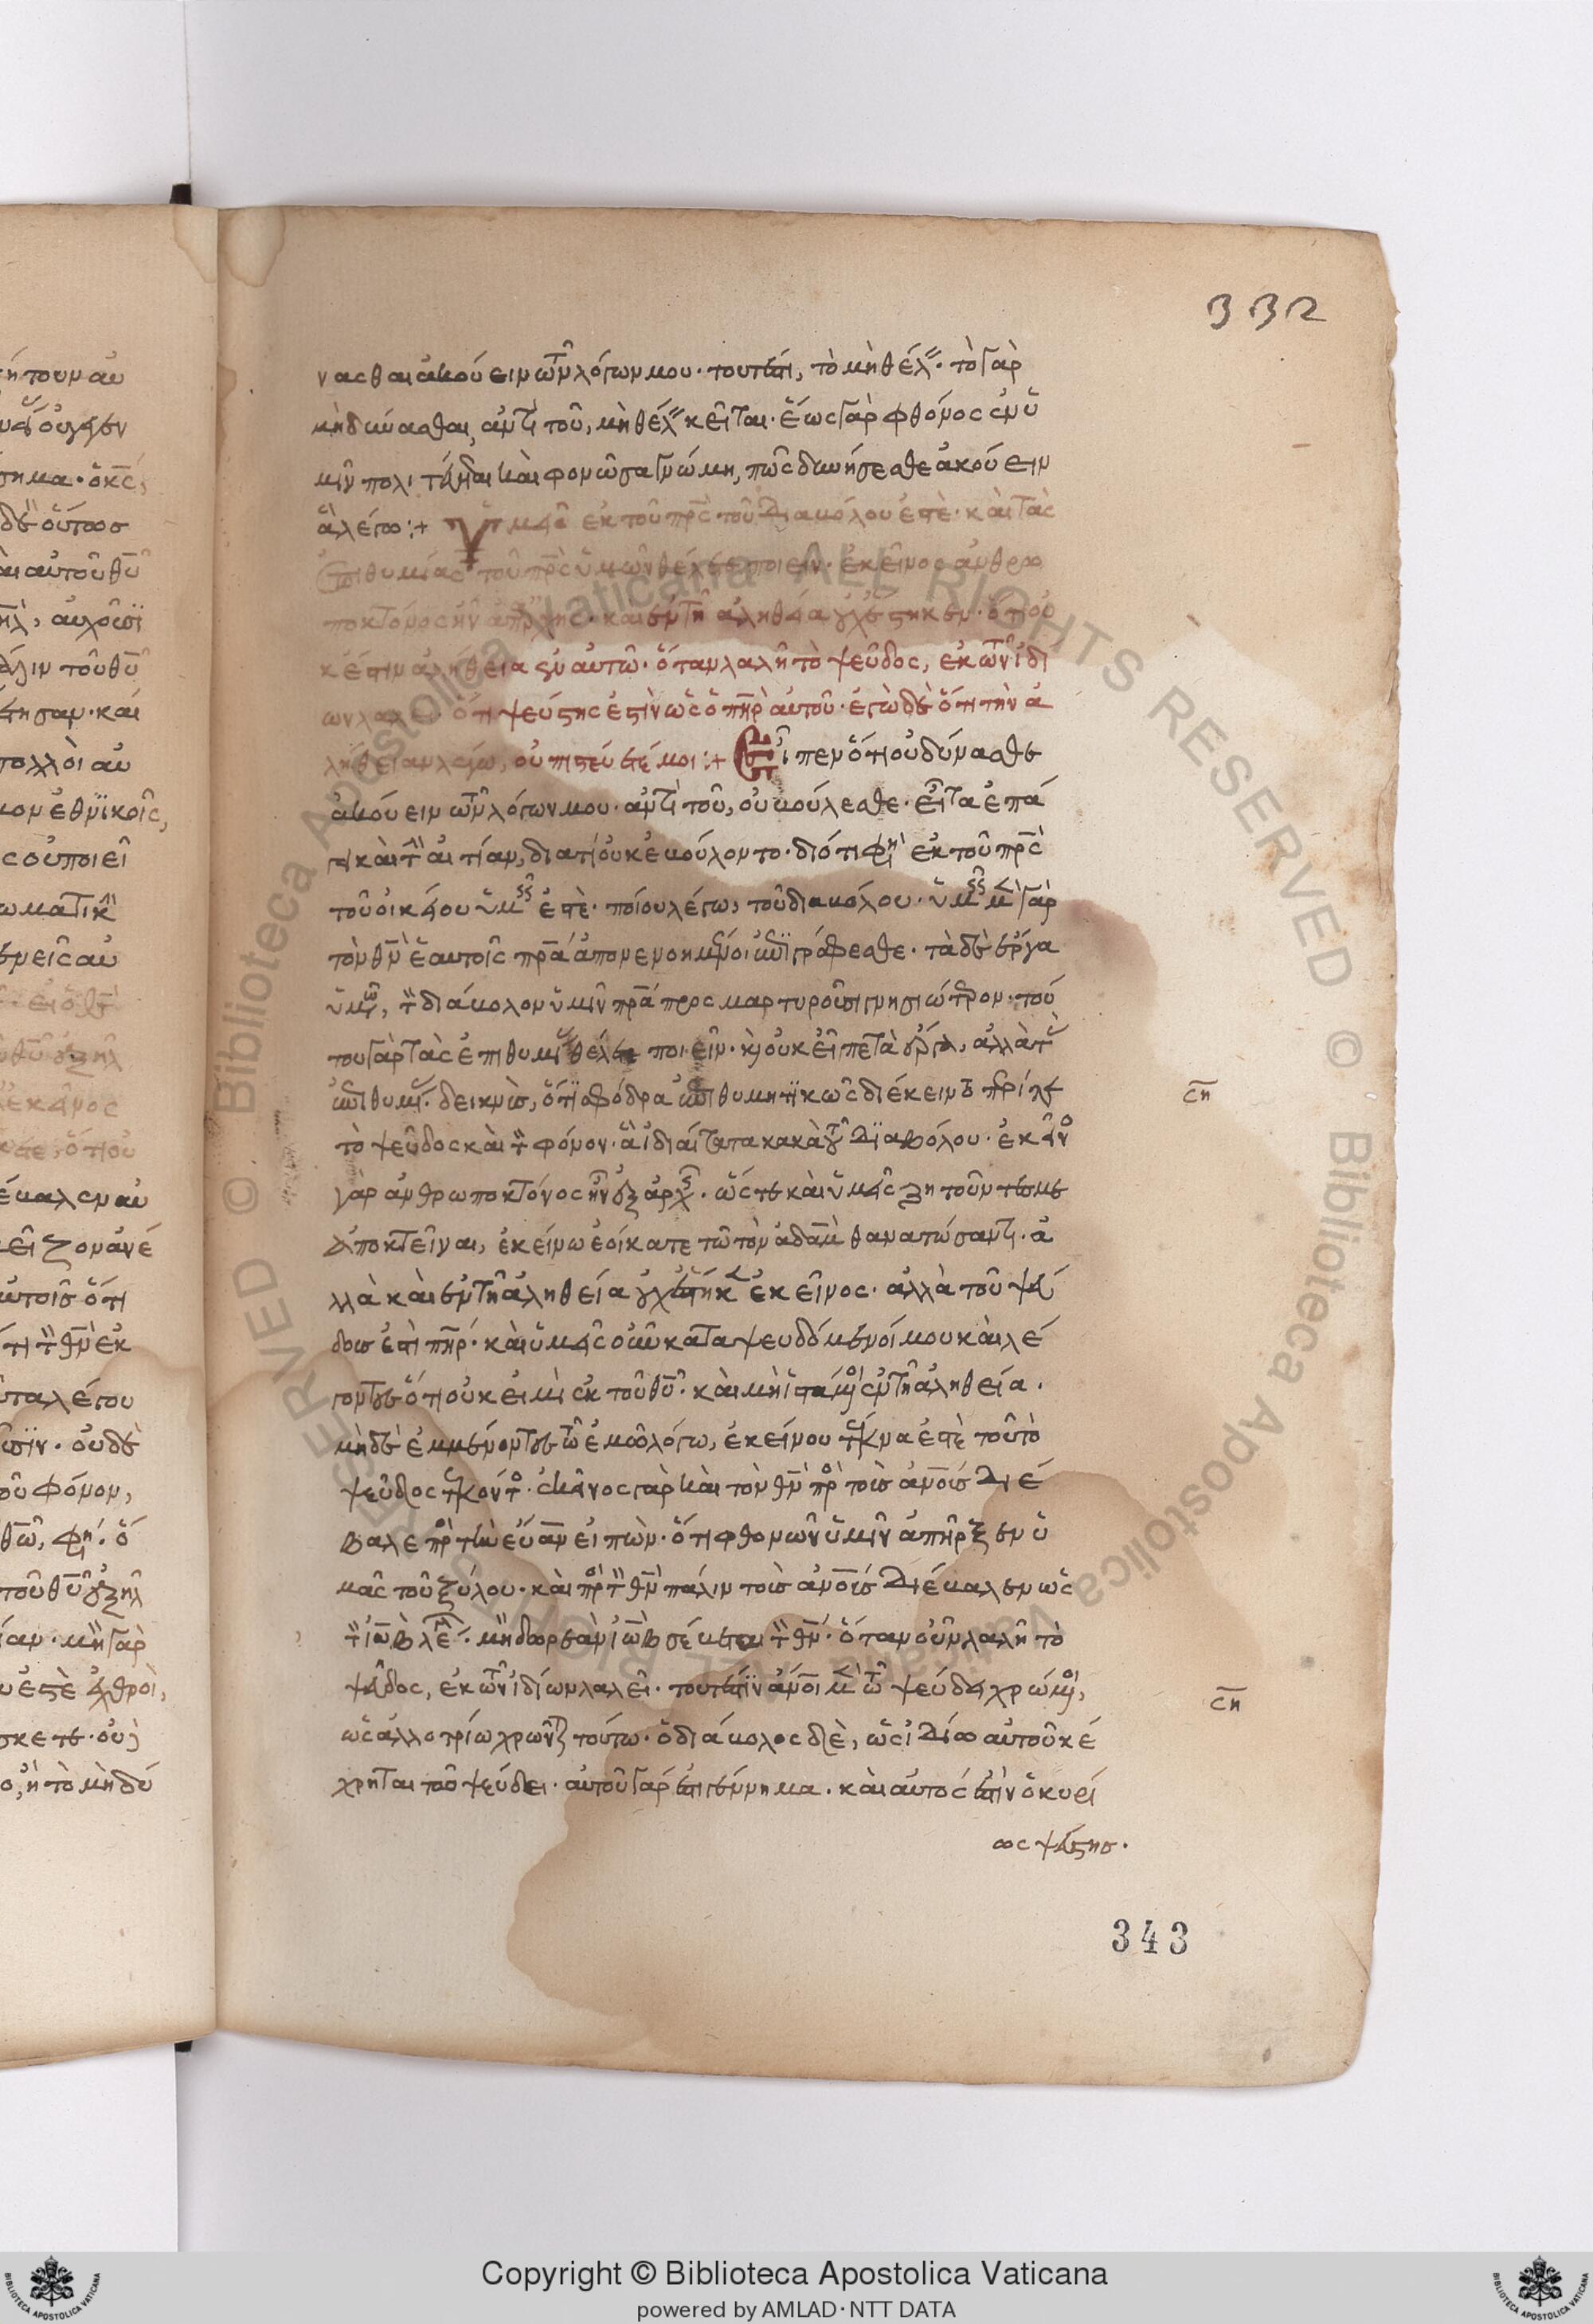 332
νασθαι ἀκούειν τῶν λόγων μου· τουτέστι, τὸ μὴ θέλειν· τὸ γὰρ
μὴ δύνασθαι, ἀντὶ τοῦ, μὴ θέλειν κεῖται· ἕως γὰρ φθόνος ἐν ὑ
μῖν πολιτεύεται καὶ φονῶσα γνώμη, πῶς δυνήσεσθε ἀκούειν
ἃ λέγω :+ Ὑμεῖς ἐκ τοῦ πρς τοῦ διαβόλου ἐστὲ· καὶ τὰς
ἐπιθυμίας τοῦ πρς ὑμῶν θέλετε ποιεῖν· ἐκεῖνος ἀνθρω
ποκτόνος ἦν ἀπαρχῆς· καὶ ἐν τῇ ἀληθεία οὐχ ἕστηκεν· ὅτι οὐ
κ ἔστιν ἀλήθεια ἐν αὐτῶ· ὅταν λαλῆ τὸ ψεῦδος, ἐκ τῶν ἰδί
ων λαλεῖ· ὅτι ψεύστης ἐστὶν ὡς ὁ πηρ αὐτοῦ· ἐγὼ δὲ ὅτι τὴν ἀ
λήθειαν λέγω, οὐ πιστεύετέ μοι :+ Εἶπεν ὅτι οὐ δύνασθε
ἀκούειν τῶν λόγων μου· ἀντὶ τοῦ, οὐ βούλεσθε· εἶτα ἐπά
γει καὶ τὴν αἰτίαν, διατί οὐκ ἐβούλοντο· διότι φησὶ ἐκ τοῦ πρς
τοῦ οἰκείου ὑμεῖς ἐστὲ· ποίου λέγω, τοῦ διαβόλου· ὑμεῖς μὲν γὰρ
τὸν θν ἑαυτοῖς πρα ἀπονενοημένοι ἐπιγράφεσθε· τὰ δὲ ἔργα
ὑμῶν, τὸν διάβολον ὑμῖν πρα προσμαρτυροῦσι γνησιώτερον· τού
του γὰρ τὰς ἐπιθυμίας θέλετε ποιεῖν· καὶ οὐκ εἶπε τὰ ἔργα, ἀλλὰ τὰς
ἐπιθυμίας· δεικνὺς, ὅτι σφόδρα ἐπιθυμητικῶς διέκειντο περί τε
ση
τὸ ψεῦδος καὶ τὸν φόνον· ἃ ἰδιαίτατα κακὰ τοῦ διαβόλου· ἐκεῖνος
γὰρ ἀνθρωποκτόνος ἦν ἐξ ἀρχῆς· ὥστε καὶ ὑμεῖς ζητοῦντές με
ἀποκτεῖναι, ἐκείνω ἐοίκατε τῶ τὸν ἀδὰμ θανατώσαντι· ἀ
λλὰ καὶ ἐν τῇ ἀληθεία οὐχ ἕστηκεν ἐκεῖνος· ἀλλὰ τοῦ ψεύ
δους ἐστὶ πηρ· καὶ ὑμεῖς οὖν καταψευδόμενοί μου καὶ λέ
γοντες ὅτι οὐκ εἰμὶ ἐκ τοῦ θυ· καὶ μὴ ἱστάμενοι ἐν τῇ ἀληθεία·
μηδὲ ἐμμένοντες τῶ ἐμῶ λόγω, ἐκείνου τέκνα ἐστὲ τοῦ τὸ
ψεῦδος τεκόντος· ἐκεῖνος γὰρ καὶ τὸν θν πρὸς τοὺς ἀνους διέ
βαλε πρὸς τὴν εὔαν εἰπὼν· ὅτι φθονῶν ὑμῖν ἀπῆρξεν ὑ
μᾶς τοῦ ξύλου· καὶ πρὸς τὸν θν πάλιν τοὺς ἀνους διέβαλεν ὡς
τὸν ἰὼβ λέγει· μὴ δωρεὰν ἰὼβ σέβεται τὸν θν· ὅταν οὖν λαλῆ τὸ
ψεῦδος, ἐκ τῶν ἰδίων λαλεῖ· τουτέστιν ἄνοι μὲν τῶ ψεύδει χρώμενοι,
ση
ὡς ἀλλοτρίω χρῶνται τούτω· ὁ διάβολος δὲ, ὡς ἰδίω αὐτοῦ κέ
χρηται τῶ ψεύδει· αὐτοῦ γάρ ἐστι γέννημα· καὶ αὐτός ἐστιν ὁ κυρί
ως ψεύστης·
343
Copyright © Biblioteca Apostolica Vaticana
powered by AMLAD·NTT DATA